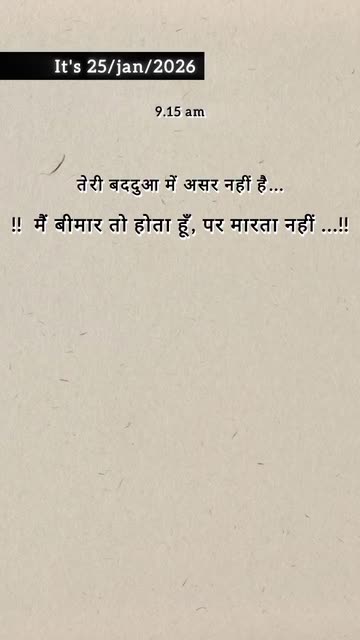 It's 25/jan/2026
9.15 am
तेरी बददुआ में असर नहीं है...
!! मैं बीमार तो होता हूँ, पर मारता नहीं ...!!